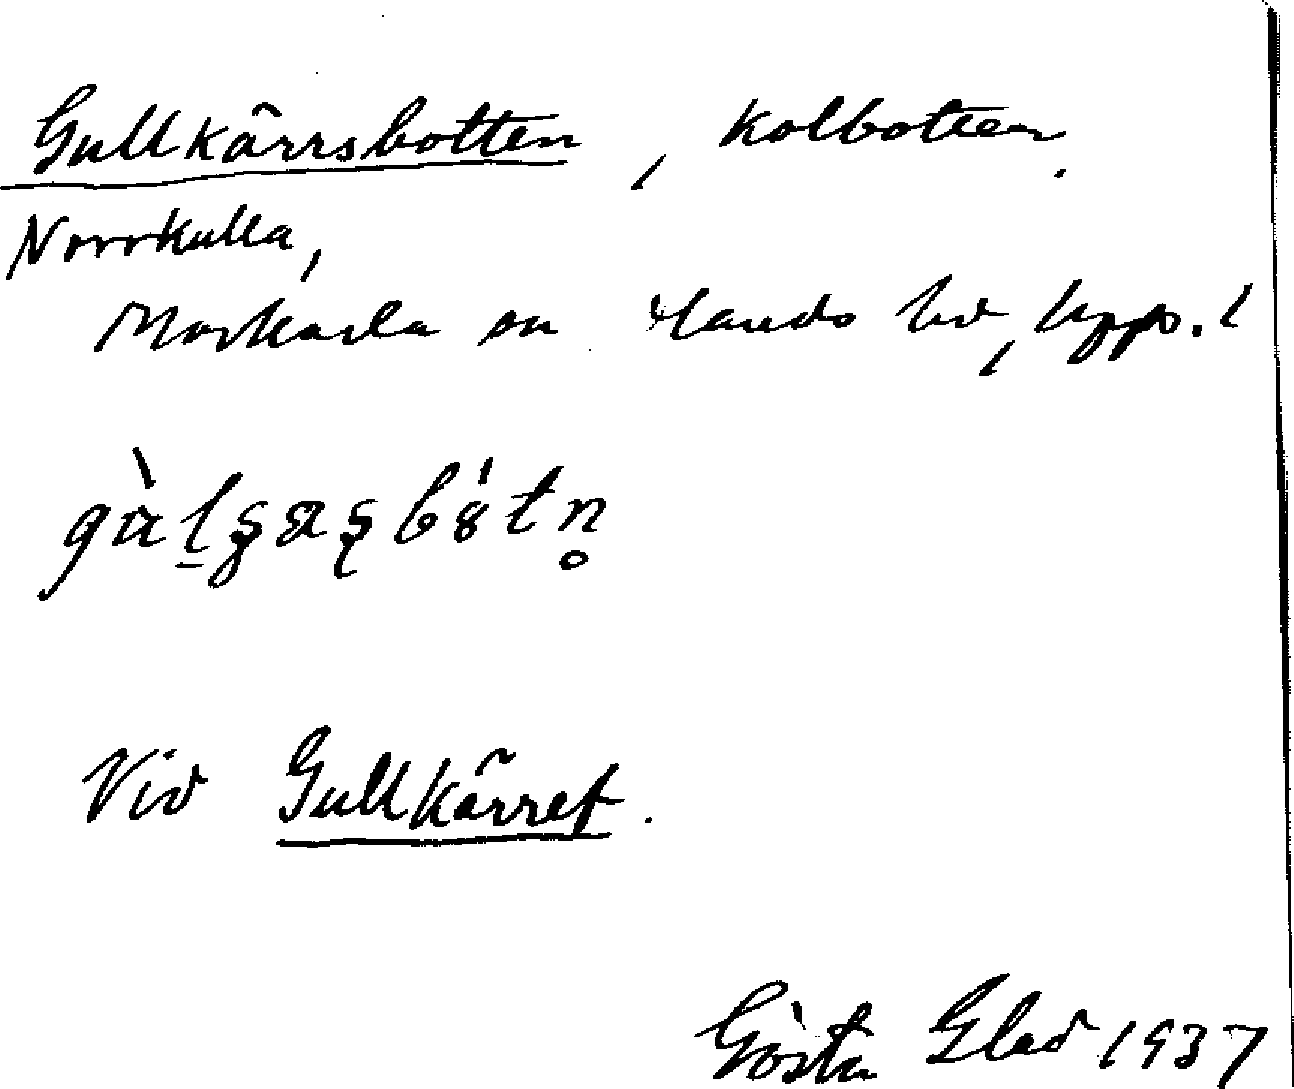 Gullkärrsbotten, kolbotten.
Norrkulla,
Morkarla sn Olands hd, Upps. l
Vid Gullkärret.
Gösta Glad 1937